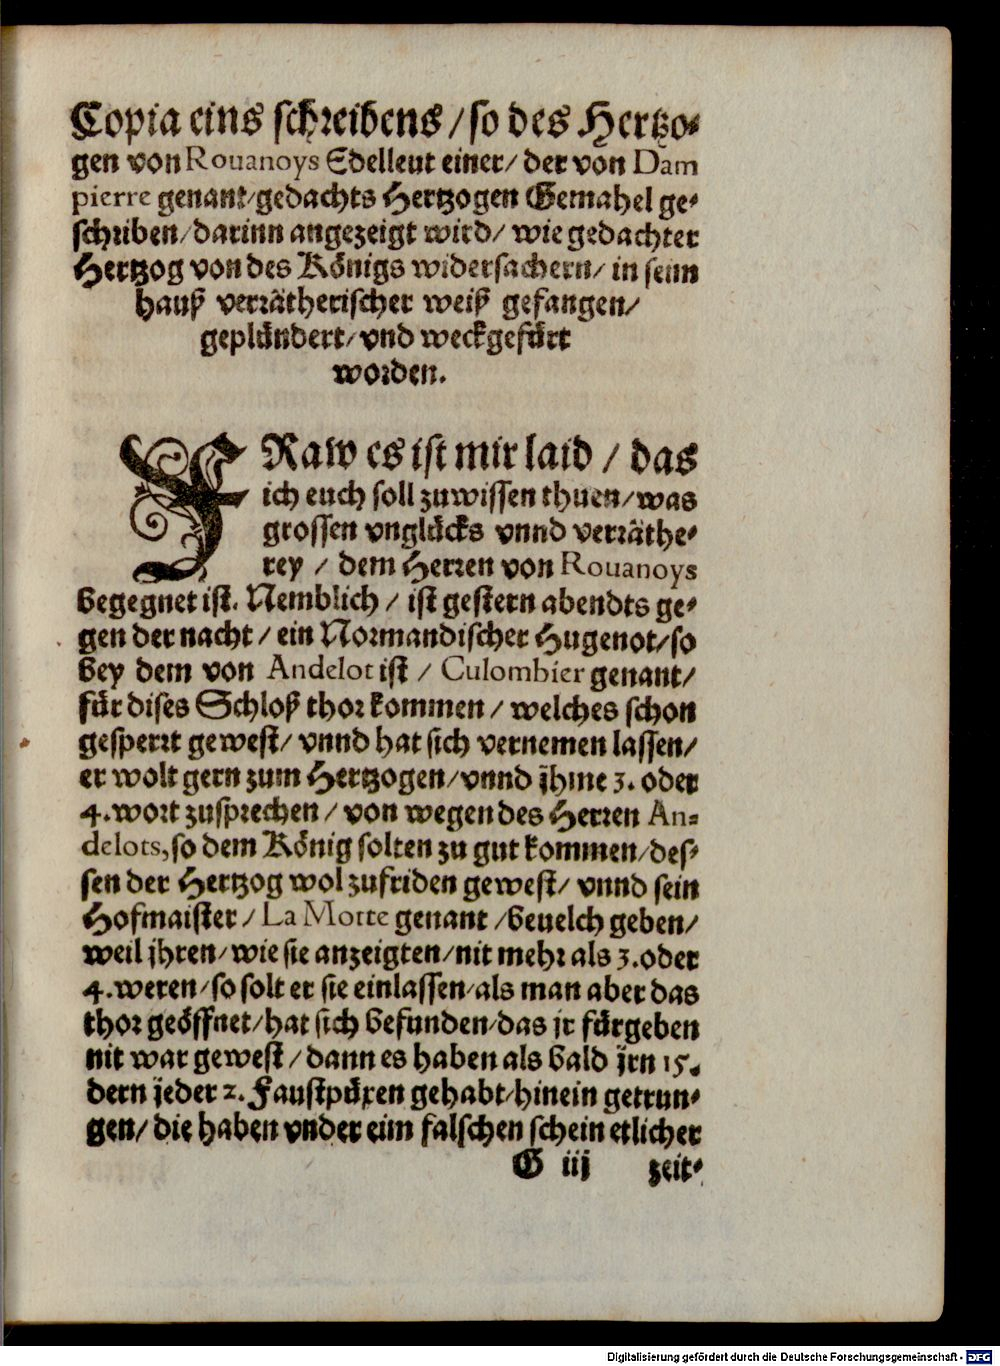 Copia eins schreibens / so des Hertzo⸗
gen von Rouanoys Edelleut einer / der von Dam
pierre genant / gedachts Hertzogen Gemahel ge⸗
schriben / darinn angezeigt wird / wie gedachter
Hertzog von des Königs widersachern / in seim
hauß verrätherischer weiß gefangen /
geplündert / vnd weckgefürt
worden.
FRaw es ist mir laid / das
ich euch soll zuwissen thuen / was
grossen vnglücks vnnd verräthe⸗
rey / dem Herren von Rouanoys
begegnet ist. Nemblich / ist gestern abendts ge⸗
gen der nacht / ein Normandischer Hugenot / so
bey dem von Andelot ist / Culombier genant /
für dises Schloß thor kommen / welches schon
gesperrt gewest / vnnd hat sich vernemen lassen /
er wolt gern zum Hertzogen / vnnd jhme 3. oder
4. wort zusprechen / von wegen des Herren An⸗
delots, so dem König solten zu gut kommen / des⸗
sen der Hertzog wol zufriden gewest / vnnd sein
Hofmaister / La Motte genant / beuelch geben /
weil jhren / wie sie anzeigten / nit mehr als 3. oder
4. weren / so solt er sie einlassen / als man aber das
thor geöffnet / hat sich befunden / das jr fürgeben
nit war gewest / dann es haben als bald jrn 15.
dern jeder 2. Faustpüxen gehabt / hinein getrun⸗
gen / die haben vnder eim falschen schein etlicher
G iij zeit⸗
Digitalisierung gefördert durch die Deutsche Forschungsgemeinschaft - DFG